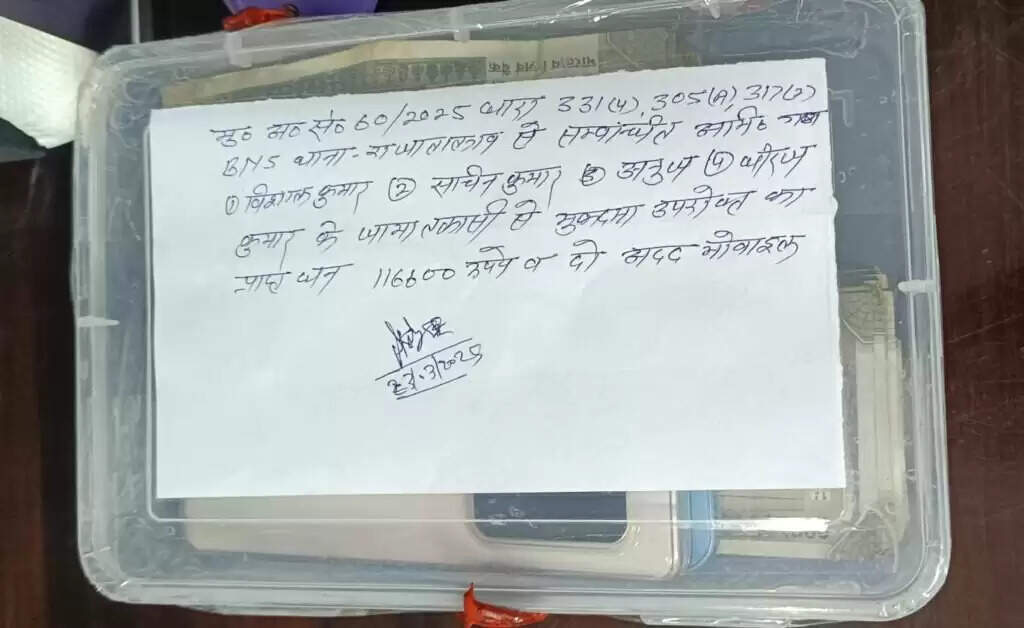 भारतीय रिज़र्व बैंक
मु० अ० सं० 60/2025 धारा 331(4), 305(A), 317(2)
BNS थाना- राजातालाब से सम्बन्धित अभि० गण
① विशाल कुमार ② सचिन कुमार ③ अनुज ④ धीरज
कुमार के जामा तलाशी से मुकदमा उपरोक्त का
प्राप्त धन 116600 रूपये व दो अदद मोबाइल
23.3/2025